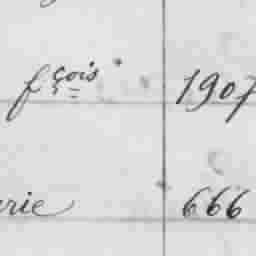 fçois 1907
rie 666